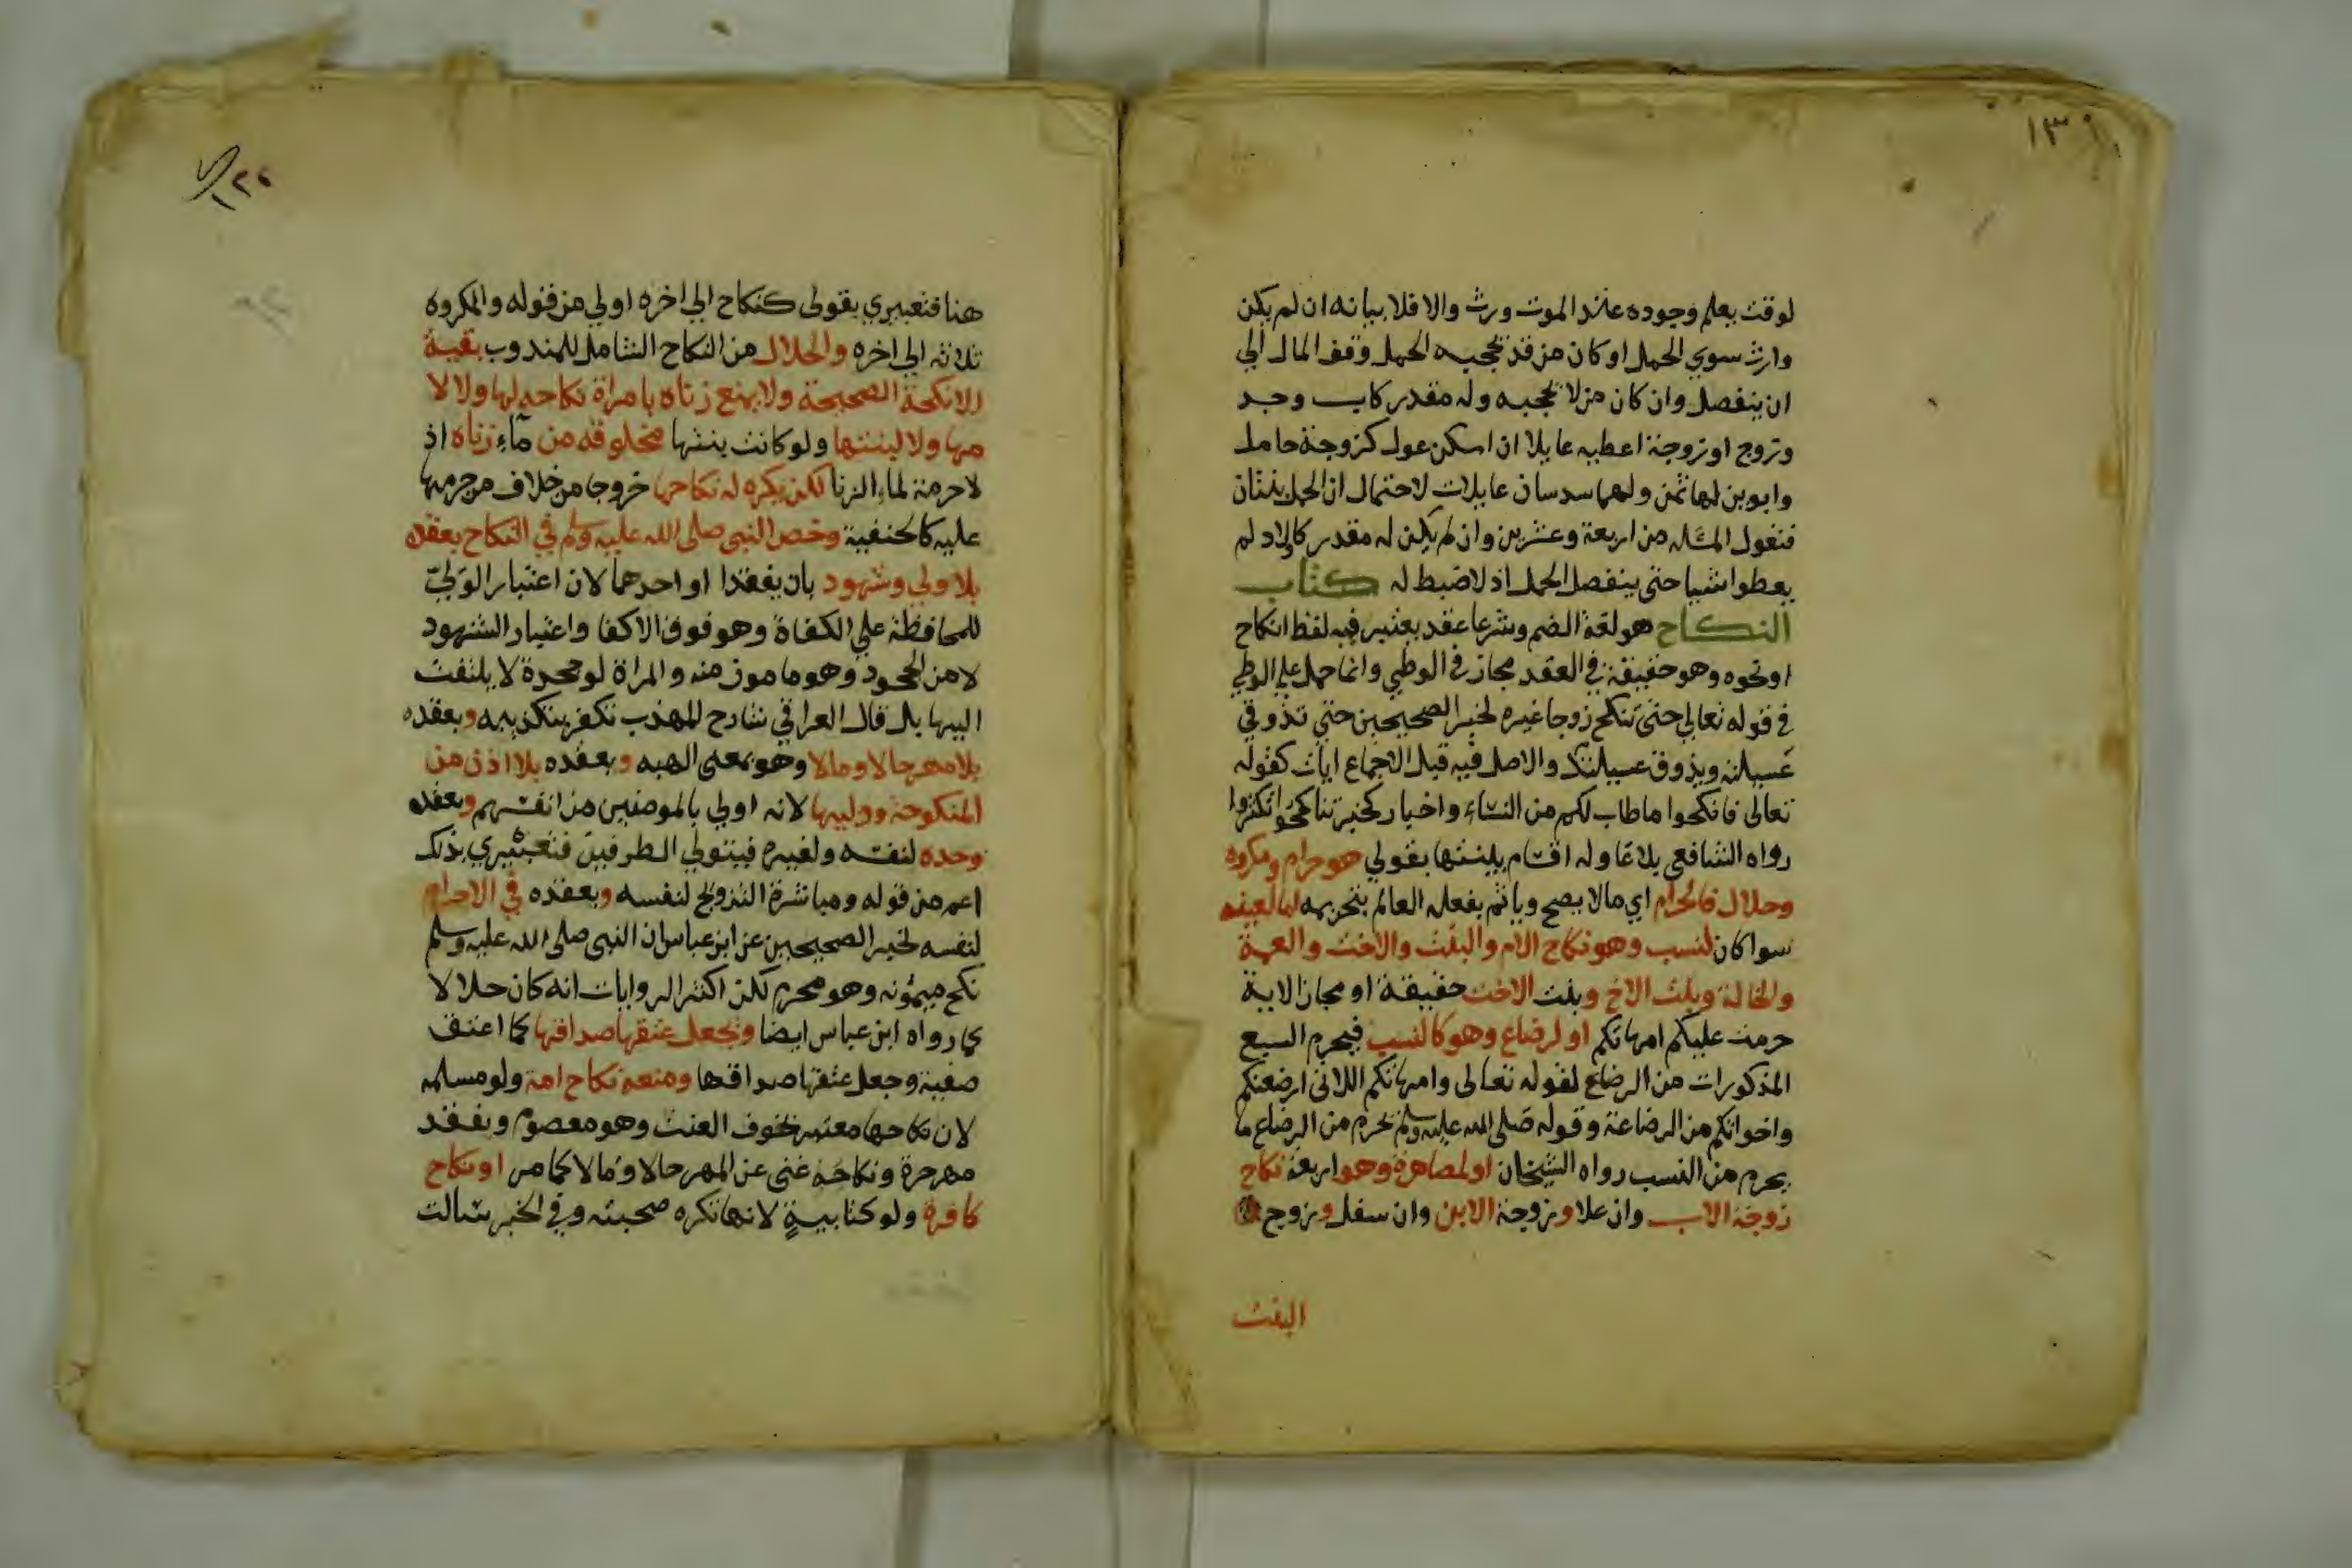 ١٣١
لوقت يعلم وجوده عند الموت ورث والا فلا بيانه ان لم يكن
وارث سوي الحمل او كان من قد يحجبه الحمل وقف المال الي
ان ينفصل وان كان من لا يحجبه وله مقدر كاب وجد
وزوج او زوجة اعطيه عايلا ان امكن عول كزوجة حامل
وابوين لها ثمن ولهما سدسان عايلات لاحتمال ان الحمل بنتان
فتعول المسئله من اربعة وعشرين وان لم يكن له مقدر كاولاد لم
يعطوا شيا حتي ينفصل الحمل اذ لا ضبط له كتاب
النكاح هو لغة الضم وشرعا عقد يعتبر فيه لفظ انكاح
او نحوه وهو حقيقة في العقد مجاز في الوطي وانما حمل علي الوطي
في قوله تعالي حتي تنكح زوجا غيره لخبر الصحيحين حتي تذوقي
عسيلته ويذوق عسيلتك والاصل فيه قبل الاجماع ايات كقوله
تعالى فانكحوا ما طاب لكم من النساء واخبار كخبر تناكحوا تكثروا
رواه الشافعي بلاغا وله اقسام بينتها بقولي هو حرام ومكروه
وحلال فالحرام اي مالا يصح وياثم بفعله العالم بتحريمه اما لعينه
سوا كان لنسب وهو نكاح الام والبنت والاخت والعمة
والخالة وبنت الاخ وبنت الاخت حقيقة او مجاز الاية
حرمت عليكم امهاتكم او لرضاع وهو كالنسب فيحرم السبع
المذكورات من الرضاع لقوله تعالى وامهاتكم اللاتي ارضعنكم
واخواتكم من الرضاعة وقوله صلى الله عليه وسلم يحرم من الرضاع ما
يحرم من النسب رواه الشيخان او لمصاهرة وهو اربعة نكاح
زوجة الاب وان علا وزوجة الابن وان سفل وزوج
البنت
١٢٠
هنا فتعبيري بقولى كنكاح الي اخره اولي من قوله والمكروه
ثلاثه الي اخره والحلال من النكاح الشامل للمندوب بقية
الانكحة الصحيحة ولا يمنع زناه بامراة نكاحه لها ولا لا
مها ولا لبنتها ولو كانت بنتها مخلوقه من مآء زناه اذ
لا حرمة لماء الزنا لكن يكره له نكاحها خروجا من خلاف من حرمها
عليه كالحنفية وخص النبي صلى الله عليه وسلم في النكاح بعقده
بلا ولي وشهود بان يفقدا او احدهما لان اعتبار الولي
للمحافظة علي الكفاة وهو فوق الاكفا واعتبار الشهود
لامن الجحود وهو مامون منه والمراة لو جحدة لا يلتفت
اليها بل قال العراقي شارح المهذب تكفر بتكذيبه وبعقده
بلا مهر حالا ومالا وهو بمعنى الهبه وبعقده بلا اذن من
المنكوحة ووليها لانه اولي بالمومنين من انفسهم وبعقده
وحده لنفسه ولغيره فيتولي الطرفين فتعبيري بذلك
اعم من قوله ومباشرة التزويج لنفسه وبعقده في الاحرام
لنفسه لخبر الصحيحين عن ابن عباس ان النبي صلى الله عليه وسلم
نكح ميمونه وهو محرم لكن اكثر الروايات انه كان حلالا
كما رواه ابن عباس ايضا وبجعل عتقها صداقها كما اعتق
صفية وجعل عتقها صداقها ومنعه نكاح امة ولو مسلمه
لان نكاحها معتبر بخوف العنت وهو معصوم وبفقد
مهر حرة ونكاحه غني عن المهر حالا ومالا كما مر او نكاح
كافرة ولو كتابية لانها تكره صحبته وفي الخبر سالت